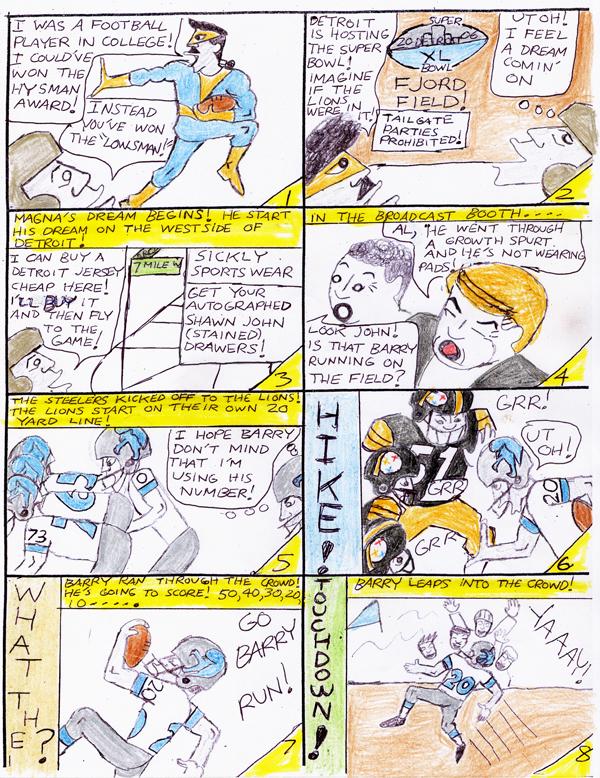 I WAS A FOOTBALL
PLAYER IN COLLEGE!
I COULD'VE
WON THE
HYSMAN
AWARD!
INSTEAD
YOU'VE WON
THE "LONSMAN!"
1
DETROIT
IS HOSTING
THE SUPER
BOWL!
IMAGINE
IF THE
LIONS
WERE IN
IT!
SUPER
20 DETROIT 06
XL
BOWL
FJORD
FIELD!
TAILGATE
PARTIES
PROHIBITED!
UT OH!
I FEEL
A DREAM
COMIN'
ON
2
MAGNA'S DREAM BEGINS! HE START
HIS DREAM ON THE WESTSIDE OF
DETROIT!
I CAN BUY A
DETROIT JERSEY
CHEAP HERE!
I'LL BUY IT
AND THEN FLY
TO THE
GAME!
7 MILE W
SICKLY
SPORTS WEAR
GET YOUR
AUTOGRAPHED
SHAWN JOHN
(STAINED)
DRAWERS!
3
IN THE BROADCAST BOOTH....
AL, HE WENT THROUGH
A GROWTH SPURT.
AND HE'S NOT WEARING
PADS!
LOOK JOHN!
IS THAT BARRY
RUNNING ON
THE FIELD?
4
THE STEELERS KICKED OFF TO THE LIONS!
THE LIONS START ON THEIR OWN 20
YARD LINE!
I HOPE BARRY
DON'T MIND
THAT I'M
USING HIS
NUMBER!
73
0
5
HIKE!
GRR!
UT
OH!
71
GRR
GRR
20
6
WHAT THE?
BARRY RAN THROUGH THE CROWD!
HE'S GOING TO SCORE! 50,40,30,20,
10.....
GO
BARRY
RUN!
20
7
TOUCHDOWN!
BARRY LEAPS INTO THE CROWD!
YAAAY!
20
8